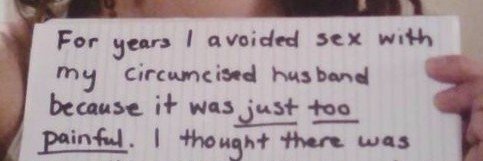 For years I avoided sex with
my circumcised husband
because it was just too
painful. I thought there was